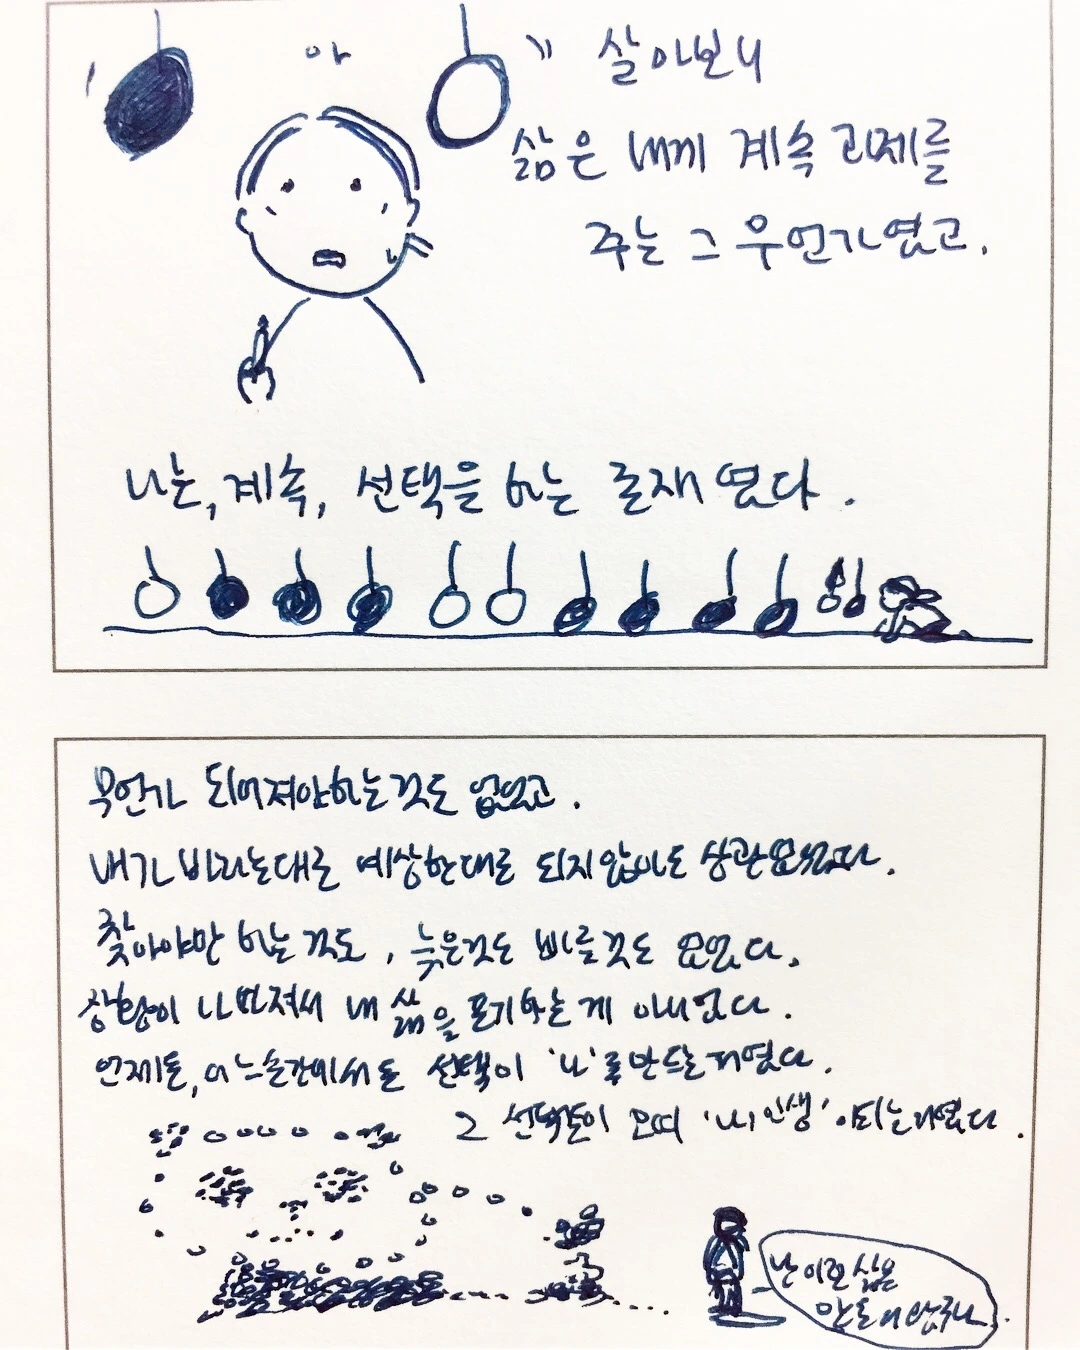 아
살아보니
삶은 내게 계속 과제를
주는 그 무언가였고.
나는, 계속, 선택을 하는 존재였다.
무언가 되어져야하는것도 없었고.
내가 바라는대로 예상한대로 되지않아도 상관없었다.
찾아야만 하는것도, 늦은것도 빠른것도 없었다.
상황이 나빠져서 내 삶을 포기하는게 아니였다.
언제든, 어느순간에서든 선택이 '나'로 만드는거였다.
그 선택들이 모여 '내 인생'이되는거였다.
난 이런 삶을
만들어왔구나.